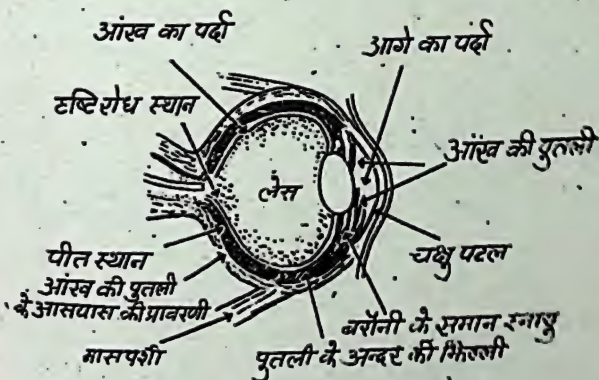 आंख का पर्दा
आगे का पर्दा
दृष्टिरोध स्थान
आंख की पुतली
लेंस
पीत स्थान
चक्षु पटल
आंख की पुतली
के आसपास की प्रावरणी
बरौनी के समान स्नायु
मासपेशी
पुतली के अन्दर की झिल्ली